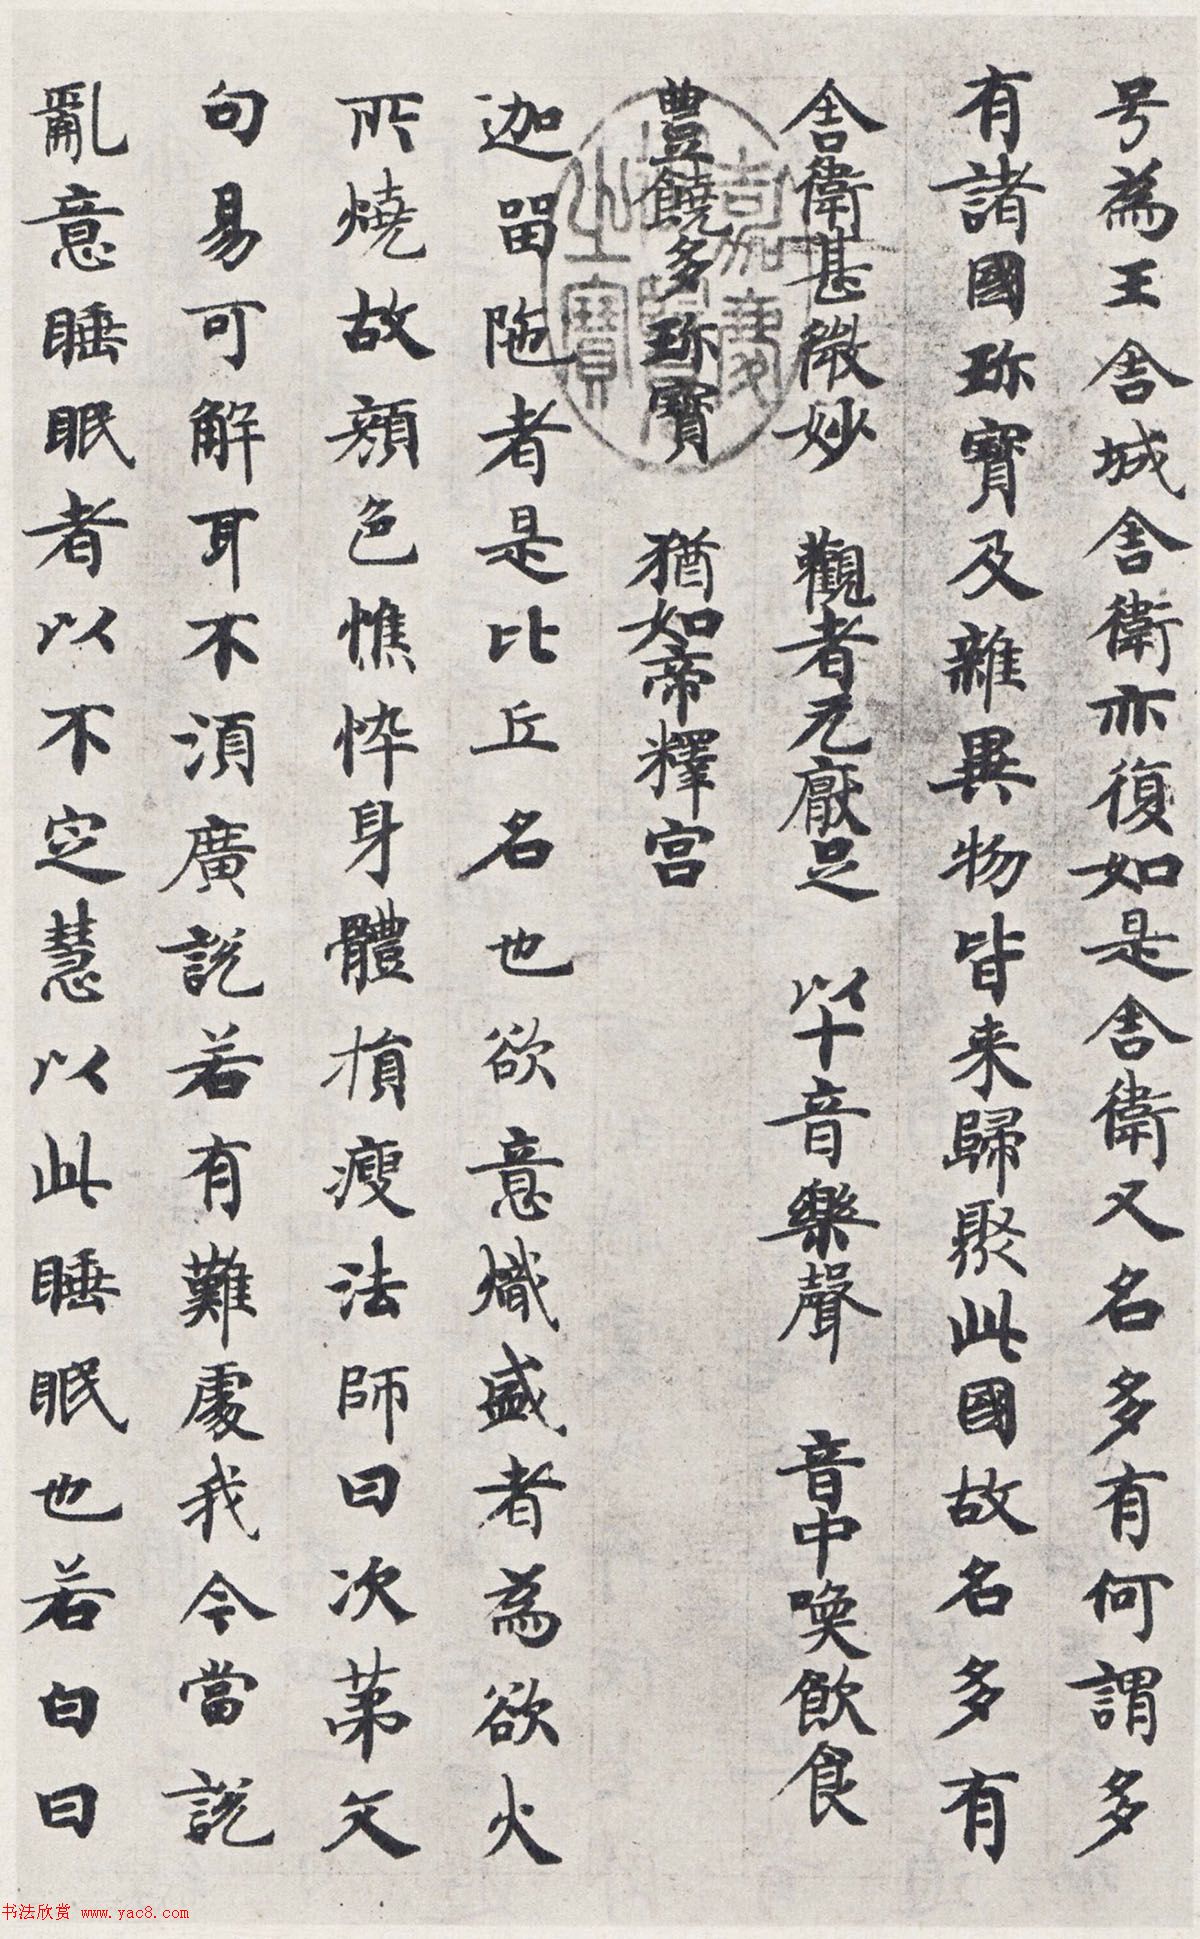 号為王舎城舎衛亦復如是舎衛又名多有何謂多
有諸國珎寳及雜異物皆来歸聚此國故名多有
舎衛甚微妙　觀者无厭足　以十音樂聲　音中喚飲食
豊饒多珎寳　猶如帝釋宫
迦留陁者是比丘名也欲意熾盛者為欲火
所燒故顔色憔悴身體損瘦法師曰次苐文
句易可解耳不湏廣説若有難處我今當説
亂意睡眠者以不定慧以此睡眠也若白日
书法欣赏 www.yac8.com